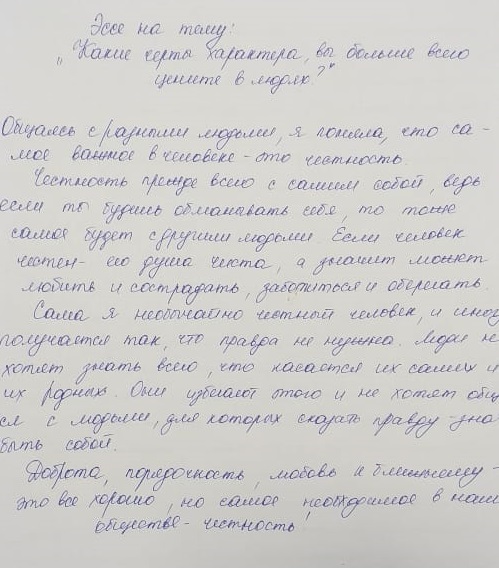 Эссе на тему:
„Какие черты характера, вы больше всего
цените в людях?"
Общаясь с разными людьми, я поняла, что са-
мое важное в человеке - это честность.
Честность прежде всего с самим собой, ведь
если ты будешь обманавать себя, то тоже
самое будет с другими людьми. Если человек
честен - его душа чиста, а значит может
любить и сострадать, заботиться и оберегать.
Сама я необычайно честный человек, и иног
получается так, что правда не нужна. Люди не
хотят знать всего, что касается их самих и
их родных. Они избегают этого и не хотят общ
ся с людьми, для которых сказать правду - зна
быть собой.
Доброта, порядочность, любовь к ближнему -
это все хорошо, но самое необходимое в наш
обществе - честность!